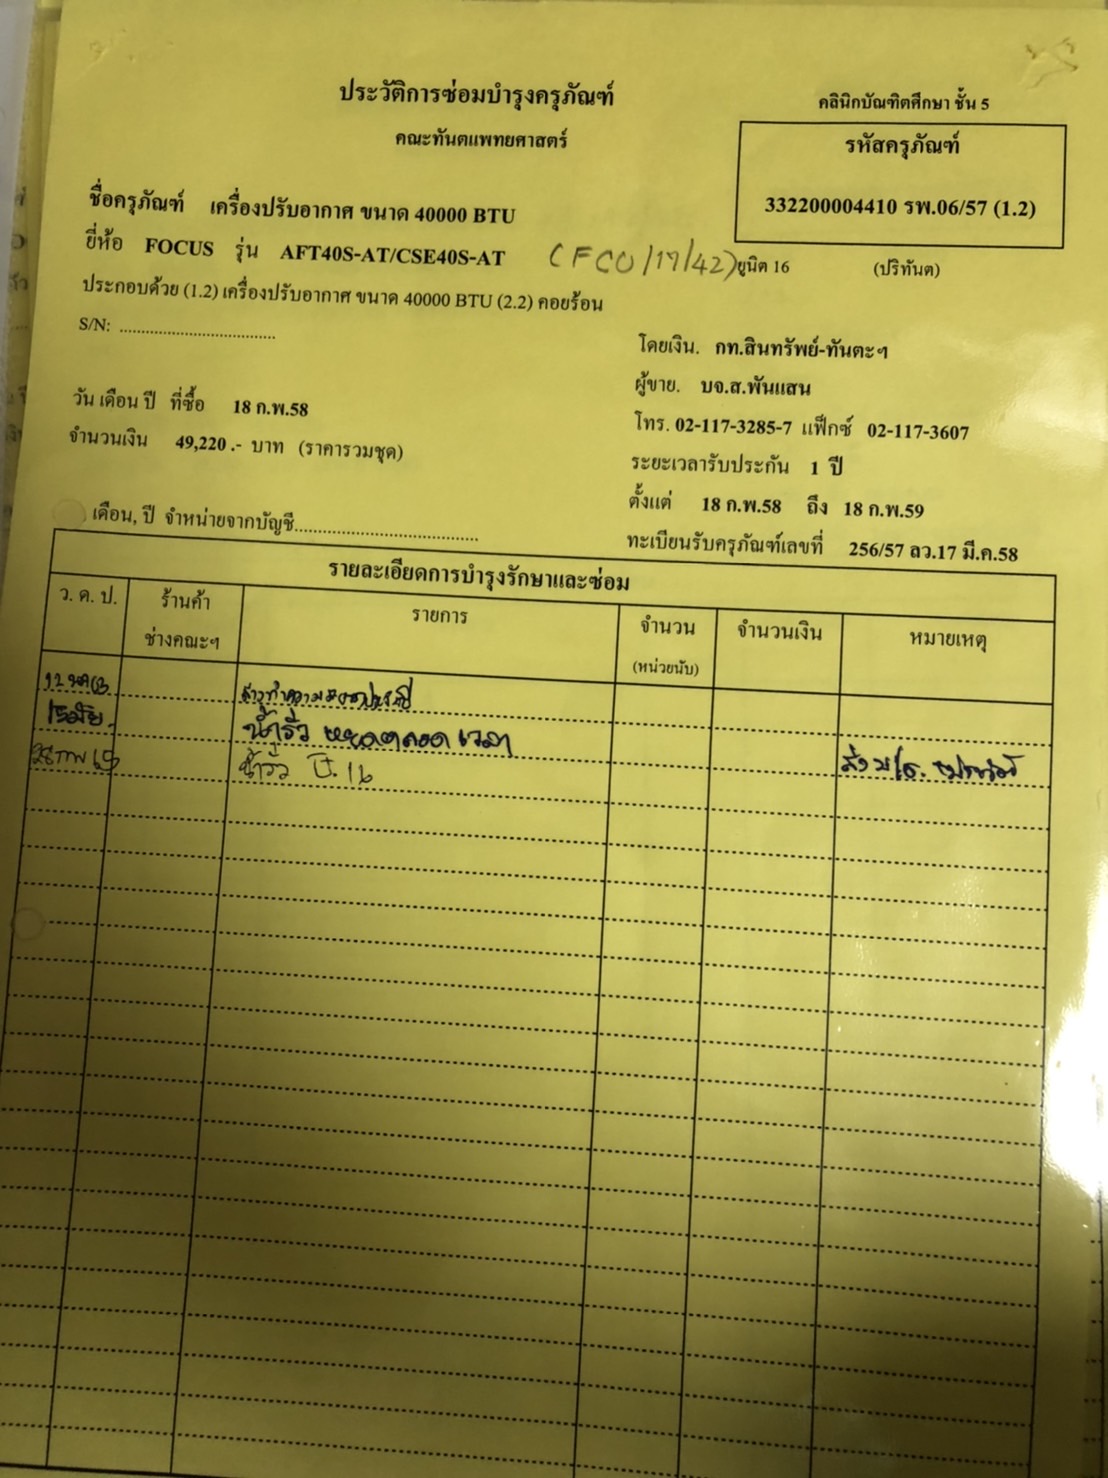 ประวัติการซ่อมบำรุงครุภัณฑ์
คณะทันตแพทยศาสตร์
คลินิกบัณฑิตศึกษา ชั้น 5
รหัสครุภัณฑ์
332200004410 รพ.06/57 (1.2)
ชื่อครุภัณฑ์ เครื่องปรับอากาศ ขนาด 40000 BTU
ยี่ห้อ FOCUS รุ่น AFT40S-AT/CSE40S-AT (FCO/17/42) ยูนิต 16 (ปริทันต)
ประกอบด้วย (1.2) เครื่องปรับอากาศ ขนาด 40000 BTU (2.2) คอยร้อน
S/N: ....................................
โดยเงิน. กท.สินทรัพย์-ทันตะฯ
ผู้ขาย. บจ.ส.พันแสน
วัน เดือน ปี ที่ซื้อ 18 ก.พ.58
โทร. 02-117-3285-7 แฟ็กซ์ 02-117-3607
จำนวนเงิน 49,220.- บาท (ราคารวมชุด)
ระยะเวลารับประกัน 1 ปี
ตั้งแต่ 18 ก.พ.58 ถึง 18 ก.พ.59
เดือน, ปี จำหน่ายจากบัญชี..........................................
ทะเบียนรับครุภัณฑ์เลขที่ 256/57 ลว.17 มี.ค.58
รายละเอียดการบำรุงรักษาและซ่อม
ว. ด. ป. ร้านค้า ช่างคณะฯ รายการ จำนวน (หน่วยนับ) จำนวนเงิน หมายเหตุ
ล้างทำความสะอาดประจำปี
น้ำรั่ว หยดตลอดเวลา
28 กพ 65 น้ำรั่ว ป. 16 ส่ง